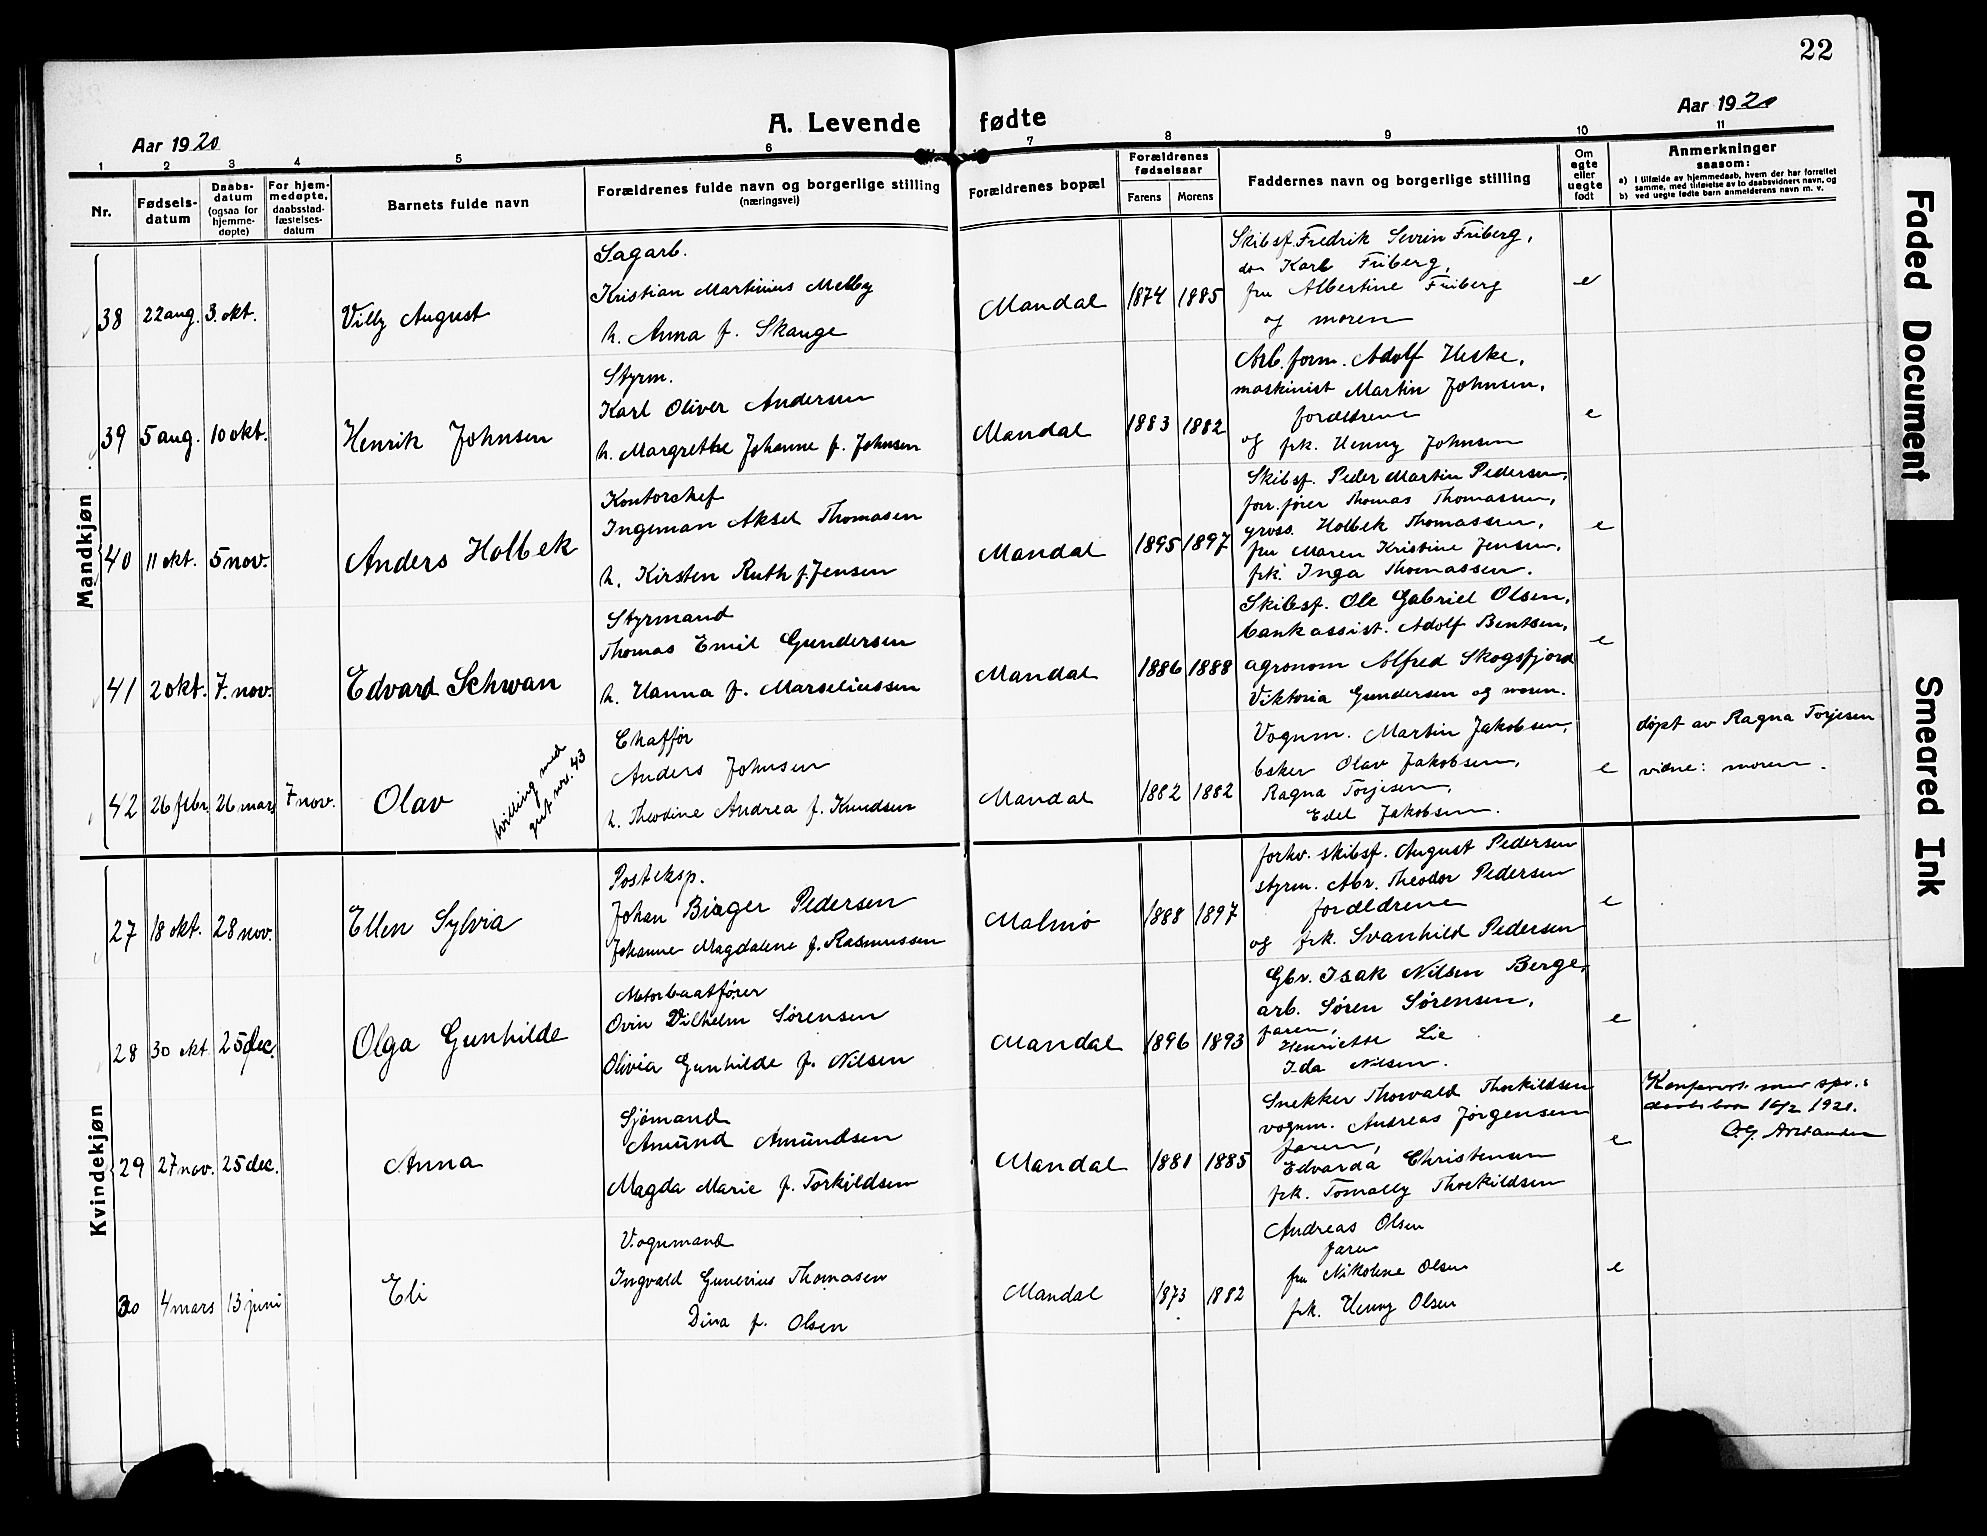 22
Aar 1920
A. Levende fødte
Aar 1920
1 2 3 4 5 6 7 8 9 10 11
Nr.
Fødsels-
datum
Daabs-
datum
(ogsaa for
hjemme-
døpte)
For hjem-
medøpte,
daabsstad-
fæstelses-
datum
Barnets fulde navn
Forældrenes fulde navn og borgerlige stilling
(næringsvei)
Forældrenes bopæl
Forældrenes
fødselsaar
Farens Morens
Faddernes navn og borgerlige stilling
Om
egte
eller
uegte
født
Anmerkninger
saasom:
a) I tilfælde av hjemmedaab, hvem der har forrettet
samme, med tilføielse av to daabsvidners navn, og
b) ved uegte fødte barn anmelderens navn m. v.
Mandkjøn
38 22 aug. 3. okt.
Villy August
Sagarb.
Kristian Martinius Melby
h. Anna f. Skauge
Mandal 1874 1885
Skibsf. Fredrik Sevrin Friberg,
do Karl Friberg,
fru Albertine Friberg
og moren
e
39 5 aug. 10 okt.
Henrik Johnsen
Styrm.
Karl Oliver Andersen
h. Margrethe Johanne f. Johnsen
Mandal 1883 1882
Arb. form. Adolf Heske,
maskinist Martin Johnsen,
forældrene
og frk. Henny Johnsen
e
40 11 okt. 5 nov.
Anders Holbek
Kontorchef
Ingeman Aksel Thomasen
h. Kirsten Ruth f. Jensen
Mandal 1895 1897
Skibsf. Peder Martin Pedersen,
forr.fører Thomas Thomassen,
gross. Holbek Thomassen,
fru Maren Kristine Jensen,
frk. Inga Thomassen.
e
41 2 okt. 7. nov.
Edvard Schwan
Styrmand
Thomas Emil Gundersen
h. Hanna f. Marseliussen
Mandal 1886 1888
Skibsf. Ole Gabriel Olsen,
bankassist. Adolf Bentsen,
agronom Alfred Skogsfjord
Viktoria Gundersen og moren.
e
42 26 febr. 26 mars 7 nov.
Olav
tvilling med
gut nr. 43
Chaffør
Anders Johnsen
h. Theodine Andrea f. Knudsen
Mandal 1882 1882
Vognm. Martin Jakobsen,
bøker Olav Jakobsen,
Ragna Torjesen,
Edel Jakobsen.
e
døpt av Ragna Torjesen
vidne: moren.
Kvindekjøn
27 18 okt. 28 nov.
Ellen Sylvia
Posteksp.
Johan Birger Pedersen
Johanne Magdalene f. Rasmussen
Malmö 1888 1897
forhv. skibsf. August Pedersen
styrm. Abr. Theodor Pedersen
forældrene
og frk. Svanhild Pedersen
e
28 30 okt. 25 dec.
Olga Gunhilde
Motorbaatfører
Ovin Vilhelm Sørensen
Olivia Gunhilde f. Nilsen
Mandal 1896 1893
Gbr. Isak Nilsen Berge,
arb. Søren Sørensen,
faren,
Henriette Lie
Ida Nilsen.
e
29 27 nov. 25 dec.
Anna
Sjömand
Amund Amundsen
Magda Marie f. Torkildsen
Mandal 1881 1885
Snekker Thorvald Thorkildsen
vognm. Andreas Jørgensen
faren,
Edvarda Christensen
frk. Tomally Thorkildsen
e
16/2 1921.
30 4 mars 13 juni
Eli
Vognmand
Ingvald Gunerius Thomasen
Dina f. Olsen
Mandal 1873 1882
Andreas Olsen
faren
fru Nikoline Olsen
frk. Henny Olsen
e
Faded Document
Smeared Ink